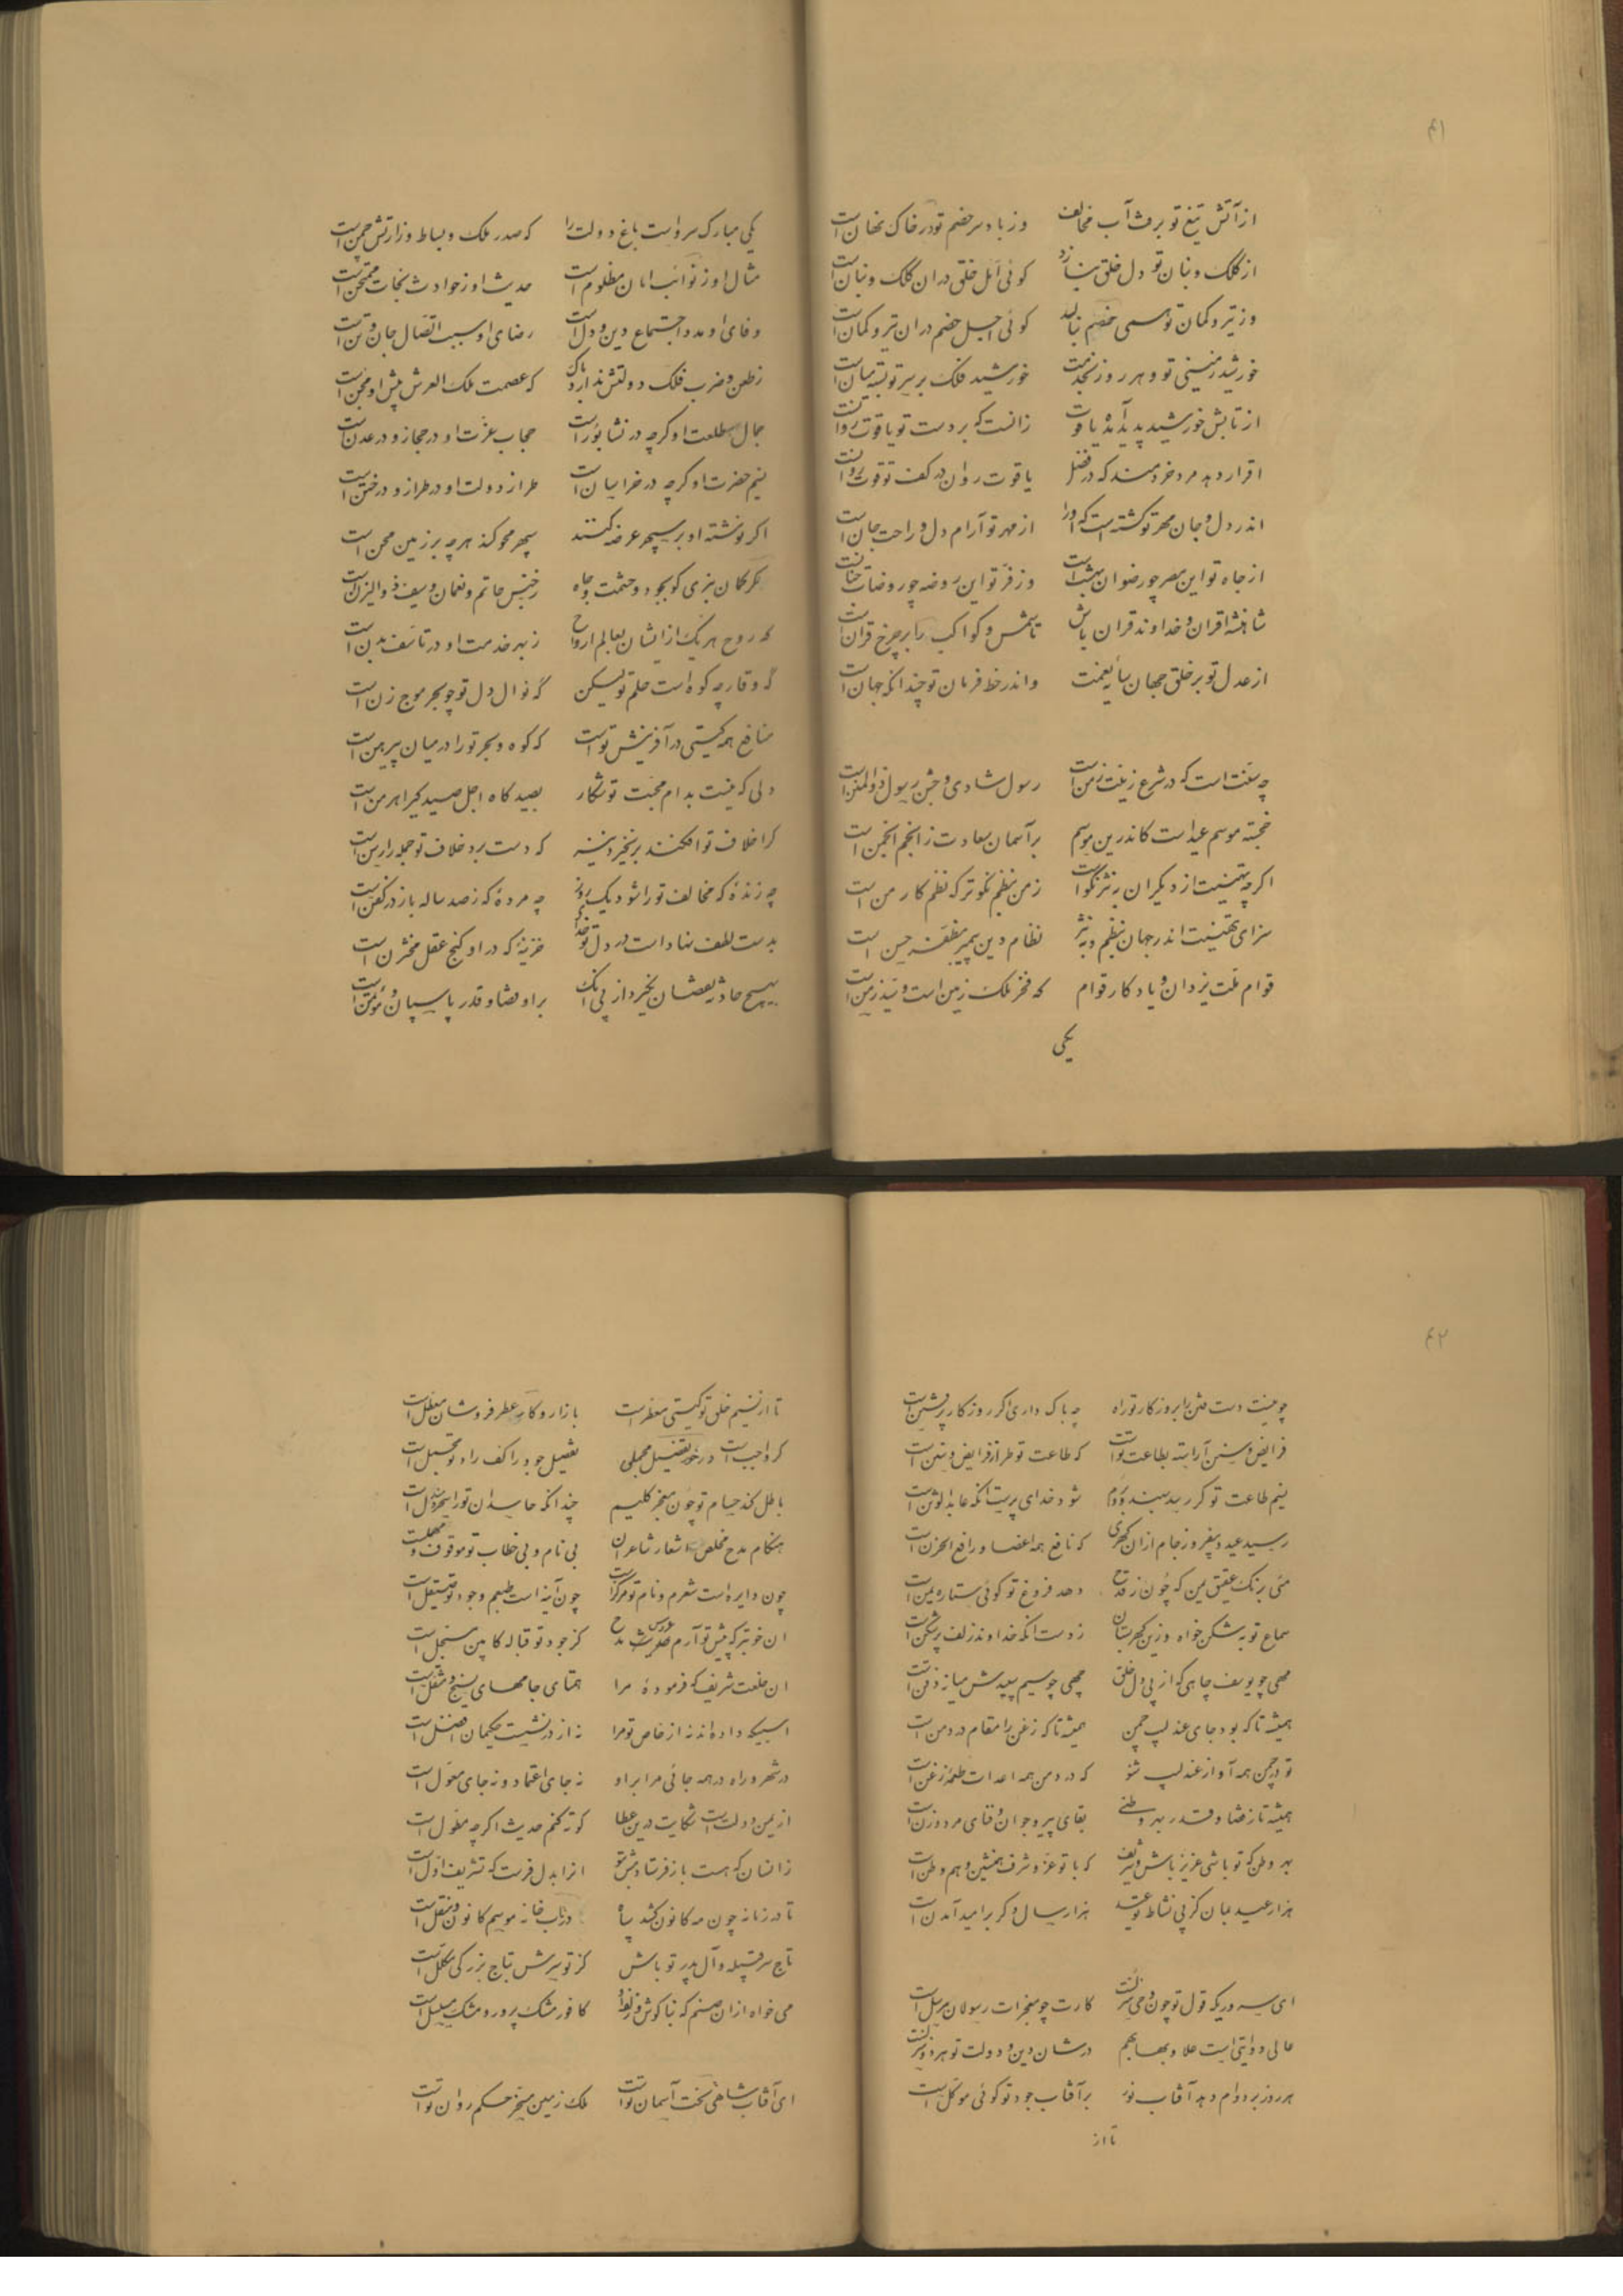 ۴۱
از آتش تیغ تو برفت آب مخالف وز باد سر خصم تو در خاک نهان است
از کلک و بنان تو دل خلق بنازد کوئی امل خلق در ان کلک و بنان است
وز تیر و کمان تو همی خصم بنالد کوئی اجل خصم در ان تیر و کمان است
خورشید زمینی تو و هر روز بخدمت خورشید فلک بر سر تو بسته میان است
از تابش خورشید پدید آمد یاقوت زانست که بر دست تو یاقوت روانست
اقرار دهد مرد خردمند که در فضل یاقوت روان در کف تو قوت روانست
اندر دل و جان مهر تو کشته است که او را از مهر تو آرام دل و راحت جان است
از جاه تو این مصر چو رضوان بهشت است وز فر تو این روضه چو روضات جنانست
شاهنشه اقران و خداوند قران باش تا شمس و کواکب را بر چرخ قران است
از عدل تو بر خلق جهان سایه نعمت واندر خط فرمان تو چندانکه جهان است
چه سنت است که در شرع زینت زمن است رسول شادی و جشن رسول ذوالمنن است
خجسته موسم عید است کاندرین موسم بر آسمان سعادت ز انجم انجمن است
اکرچه تهنیت از دیکران به نثر نکوست ز من بنظم نکوتر که نظم کار من است
سزای تهنیت اندر جهان بنظم و به نثر نظام دین پیمبر مظفر حسن است
قوام ملت یزدان و یادکار قوام که فخر ملک زمین است و نیز زمن است
یکی
یکی مبارک سرو است باغ دولت را که صدر ملک و بساط وزارتش چمن است
مثال او ز نوائب امان مظلوم است حدیث او ز حوادث نجات ممتحن است
وفای او مدد اجتماع دین و دل است رضای او سبب اتصال جان و تن است
ز طعن و ضرب فلک دولتش ندارد باک که عصمت ملک العرش پیش او مجن است
جمال طلعت او کرچه در نشابور است حجاب عزت او در حجاز و در عدن است
نسیم حضرت او کرچه در خراسان است طراز دولت او در طراز و در ختن است
اکر نوشته او بر سپهر عرضه کنند سپهر محو کند هرچه بر زمین محن است
مکر کمان نبری کو بجود و حشمت و جاه ز جنس حاتم و نعمان و سیف ذوالیزن است
که روح هر یک از ایشان بعالم ارواح ز بهر خدمت او در تاسف بدن است
که وقار چه کوه است حلم تو لیکن که نوال دل تو چو بحر موج زن است
منافع همه کیتی در آفرینش تو است که کوه و بحر تو را در میان پیرهن است
دلی که نیست بدام محبت تو شکار بصید کاه اجل صید کیر اهرمن است
کرا خلاف تو افکند برنخیزد نیز که دست برد خلاف تو جمله را رسن است
چه زنده که مخالف تو را شود یک روز چه مرده که ز صد ساله باز در کفن است
بدست لطف نهاد است در دل تو خدا خزینه که در او کنج عقل مختزن است
بهیچ حادثه نقصان نکیرد از پی انک بر او قضا و قدر پاسبان و مؤتمن است
۴۲
چو نیست دست فتن را بروزکار تو راه چه باک داری اکر روزکار پر فتن است
فرایض و سنن آراسته بطاعت تو است که طاعت تو طراز فرایض و سنن است
نسیم طاعت تو کر رسد بهند و بروم شود خدای پرست انکه عابد الوثن است
رسید عید و بیفروز جام ازان کهری که نافع همه اعضا و رافع الحزن است
مئی برنک عقیق یمن که چون ز قدح دهد فروغ تو کوئی ستاره یمن است
سماع توبه شکن خواه و زین کهر بستان ز دست انکه خداوند زلف پر شکن است
مهی چو یوسف چاهی که از پی دل خلق چهی چو سیم سپیدش میانه ذقن است
همیشه تا که بود جای عندلیب چمن همیشه تا که زغن را مقام در دمن است
تو در چمن همه آواز عندلیب شنو که در دمن همه اعدات طعمه زغن است
همیشه تا ز قضا و قدر بهر وطنی بقای پیر و جوان و فنای مرد و زن است
بهر وطن که تو باشی عزیز باش و شریف که با تو عز و شرف همنشین و هم وطن است
هزار عید بمان کز پی نشاط تو عید هزار سال دکر بر امید آمدن است
ای سروریکه قول تو چون وحی منزلست کارت چو معجزات رسولان مرسل است
عالی دو رایتی است علا و بها بهم در شان دین و دولت تو هر دو منزلست
هر روز بر دوام دهد آفتاب نور بر آفتاب جود تو کوئی موکل است
تا از
تا از نسیم خلق تو کیتی معطر است بازار و کار عطر فروشان معطل است
کر واجب است در خور تفضیل مجملی تفصیل جود را کف راد تو مجمل است
باطل کند حسام تو چون معجز کلیم چندانکه حاسدان تو را سحر و تنبل است
هنکام مدح مخلص اشعار شاعران بی نام و بی خطاب تو موقوف و مهملست
چون دایره است شعرم و نام تو مرکز است چون آینه است طبعم و جود تو صیقل است
ان خوبتر که پیش تو آرم عروس مدح کز جود تو قباله کابین مسجل است
ان خلعت شریف که فرموده مرا همتای جامهای نسیج و مثقل است
اسبیکه داده اند نه از خاص تو مرا نه از در نشست حکیمان افضل است
در شهر و راه در همه جائی مرا بر او نه جای اعتماد و نه جای معول است
از یمن دولت است شکایت درین عطا کوته کنم حدیث اکرچه مطول است
زانسان که هست باز فرستادمش بتو انرا بدل فرست که تشریف اول است
تا در زمانه چون مه کانون کشد سپاه در تاب خانه موسم کانون و منقل است
تاج سر قبیله و آل پدر تو باش کز تو سرش بتاج بزرکی مکلل است
می خواه ازان صنم که بناکوش و زلف او کافور مشک پرور و مشک مسلسل است
ای آفتاب شاهی تخت آسمان تو است ملک زمین مسخر حکم روان تو است